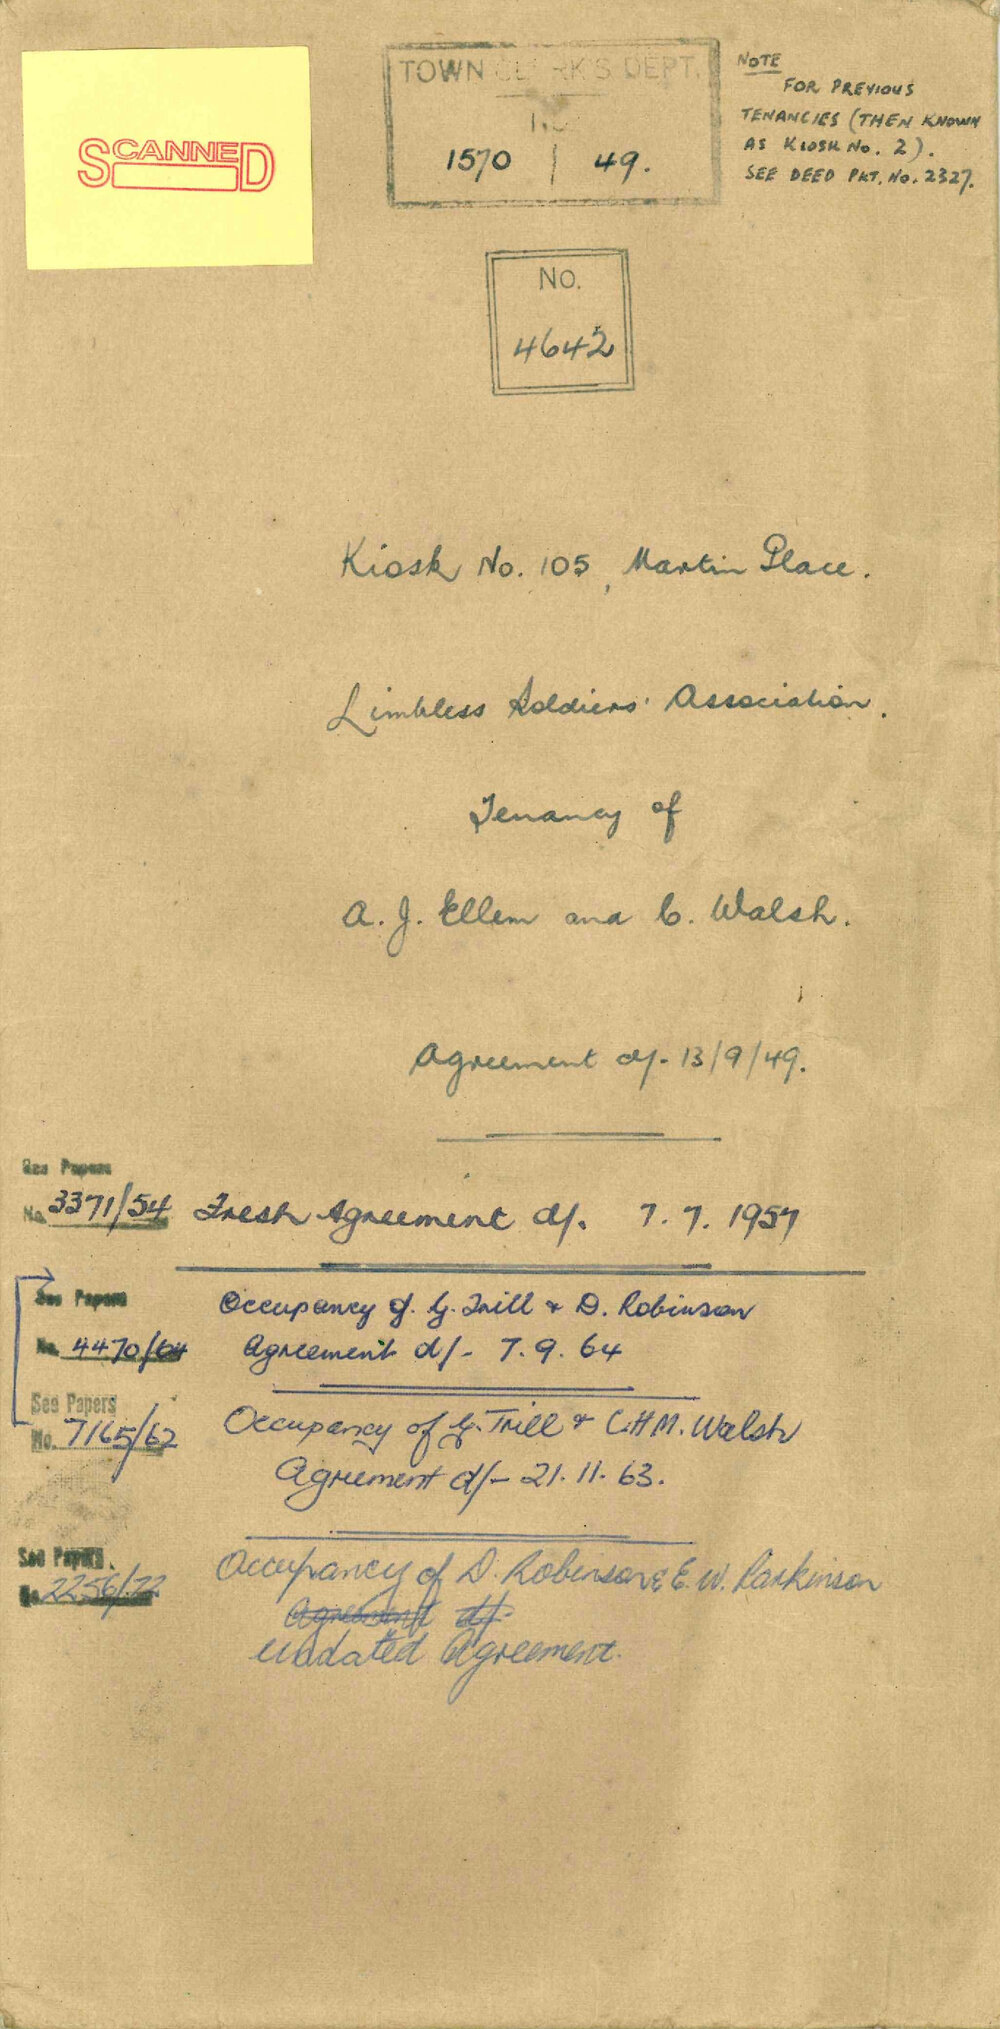 SCANNED
TOWN CLERK'S DEPT.
1570 | 49.
NOTE
FOR PREVIOUS
TENANCIES (THEN KNOWN
AS KIOSK No. 2).
SEE DEED PKT. No. 2327.
No.
4642
Kiosk No. 105, Martin Place.
Limbless Soldiers' Association.
Tenancy of
A. J. Ellem and C. Walsh.
Agreement d/- 13/9/49.
See Papers
No. 3371/54 Fresh Agreement d/. 7. 7. 1957
See Papers Occupancy of G. Trill & D. Robinson
No. 4470/64 Agreement d/- 7. 9. 64
See Papers
No. 7165/62 Occupancy of G. Trill & C.H.M. Walsh
Agreement d/- 21. 11. 63.
See Papers. Occupancy of D. Robinson & E. W. Parkinson
No. 2256/72 Agreement d/-
undated Agreement.